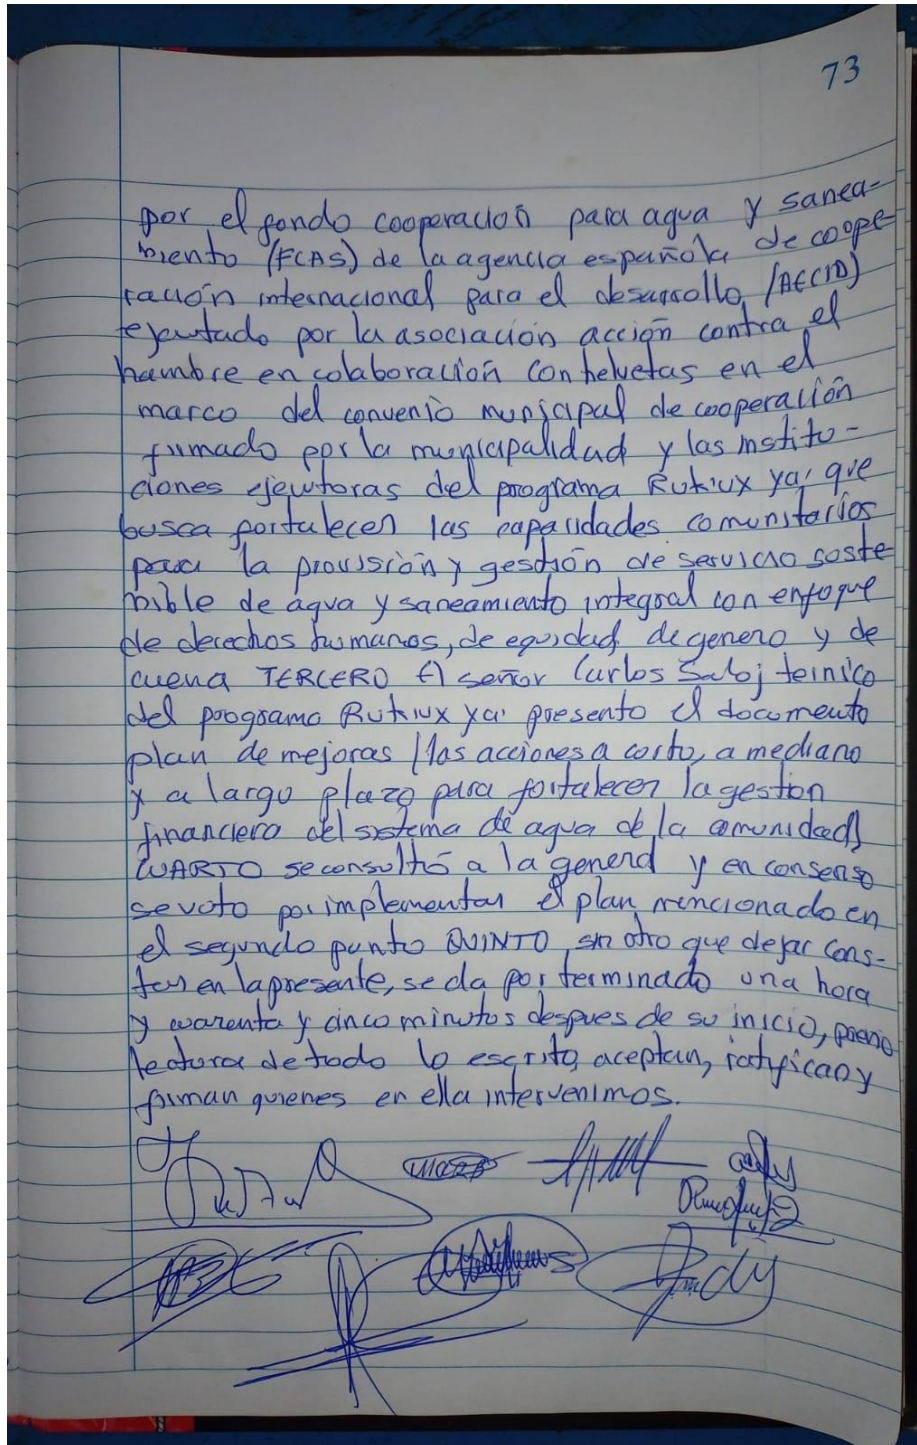 73
por el fondo cooperación para agua y sanea-
miento (FCAS) de la agencia española de coope-
ración internacional para el desarrollo (AECID)
ejecutado por la asociación acción contra el
hambre en colaboración con helvetas en el
marco del convenio municipal de cooperación
firmado por la municipalidad y las institu-
ciones ejecutoras del programa Rukiux ya' que
busca fortalecer las capacidades comunitarios
para la provisión y gestión de servicio soste
nible de agua y saneamiento integral con enfoque
de derechos humanos, de equidad de genero y de
cuena TERCERO El señor Carlos Saloj teinico
del programa Rukiux ya' presento el documento
plan de mejoras (las acciones a corto, a mediano
y a largo plazo para fortalecer la gestion
financiero del sistema de agua de la comunidad)
CUARTO se consultó a la general y en consenso
se voto por implementar el plan mencionado en
el segundo punto QUINTO sin otro que dejar cons-
tar en la presente, se da por terminado una hora
y cuarenta y cinco minutos despues de su inicio, previo
lectura de todo lo escrito, aceptan, ratifican y
firman quienes en ella intervenimos.